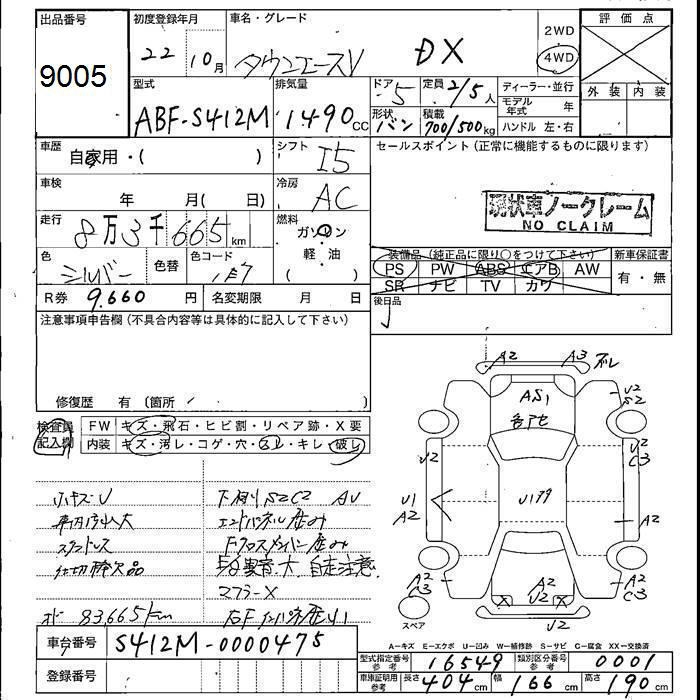 出品番号
9005
初度登録年月
22 10月
車名・グレード
タウンエースV DX
2WD
4WD
評価点
外装 内装
型式
ABF-S412M
排気量
1490cc
ドア
5
定員
2/5人
形状
バン
積載
700/500kg
ディーラー・並行
モデル年式 年
ハンドル 左・右
車歴
自家用・( )
シフト
I5
セールスポイント (正常に機能するものに限ります)
車検
年 月( 日)
冷房
AC
現状車ノークレーム
NO CLAIM
走行
8万3千665km
燃料
ガソリン
軽油
( )
色
シルバー
色替
色コード
1E7
装備品 (純正品に限り○をつけて下さい)
PS PW ABS エアB AW
SR ナビ TV カワ
新車保証書
有・無
R券 9.660円
名変期限 月 日
後日品
注意事項申告欄 (不具合内容等は具体的に記入して下さい)
修復歴 有 (箇所 )
検査員記入欄
FW キズ・飛石・ヒビ割・リペア跡・X要
内装 キズ・汚レ・コゲ・穴・スレ・キレ・破レ
小キズ・U
下廻りS2C2 AU
エンドパネル歪み
スタッドレス
Fクロスメンバー歪み
仕切棒欠品
大 自走注意
マフラーX
83,665km
A2 A3 ズレ
AS1
U2
S2
U2
U2
C3
U1
A2
U179
A2
A2
C3
A2
U2
A2
C3
X X
U2
スペア
車台番号
S412M-0000475
登録番号
A=キズ E=エクボ U=凹み W=補修跡 S=サビ C=腐食 XX=交換済
型式指定番号 参考
16549
類別区分番号 参考
0001
車庫証明用 参考
長さ 404cm
幅 166cm
高さ 190cm